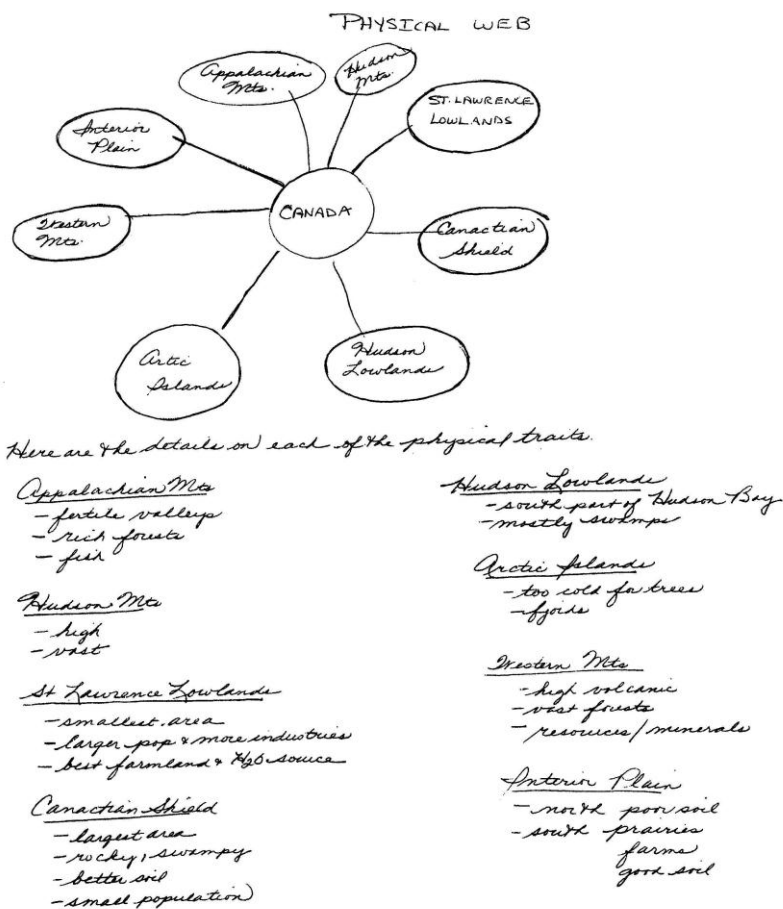 PHYSICAL WEB
Appalachian
Mts.
Hudson
Mts.
ST. LAWRENCE
LOWLANDS
Interior
Plain
CANADA
Western
Mts.
Canactian
Shield
Artic
Islands
Hudson
Lowlands
Here are the details on each of the physical traits.
Appalachian Mts
- fertile valleys
- rich forests
- fish
Hudson Mts
- high
- vast
St Lawrence Lowlands
- smallest area
- larger pop & more industries
- best farmland & H2O source
Canactian Shield
- largest area
- rocky, swampy
- better soil
- small population
Hudson Lowlands
- south part of Hudson Bay
- mostly swamps
Arctic Islands
- too cold for trees
- fjoids
Western Mts
- high volcanic
- vast forests
- resources/minerals
Interior Plain
- north poor soil
- south prairies
farms
good soil